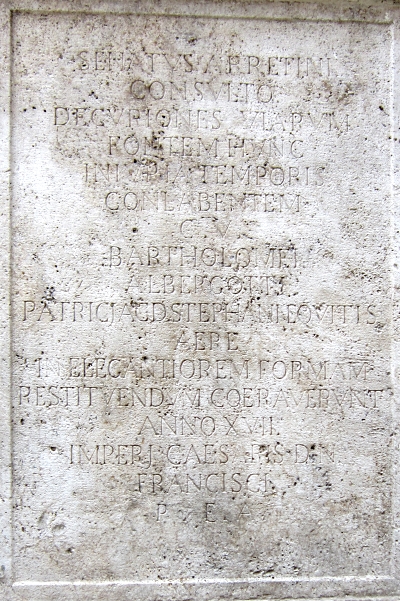 SENATVS ARRETINI
CONSVLTO
DECVRIONES VIARVM
FONTEM HVNC
INIVRIA TEMPORIS
CONLABENTEM
C V
BARTHOLOMEI
ALBERGOTTI
PATRICJ ACD STEPHANI EQVITIS
AERE
IN ELEGANTIOREM FORMAM
RESTITVENDVM COERAVERVNT
ANNO XVII
IMPERJ CAES P S D N
FRANCISCI
P E A